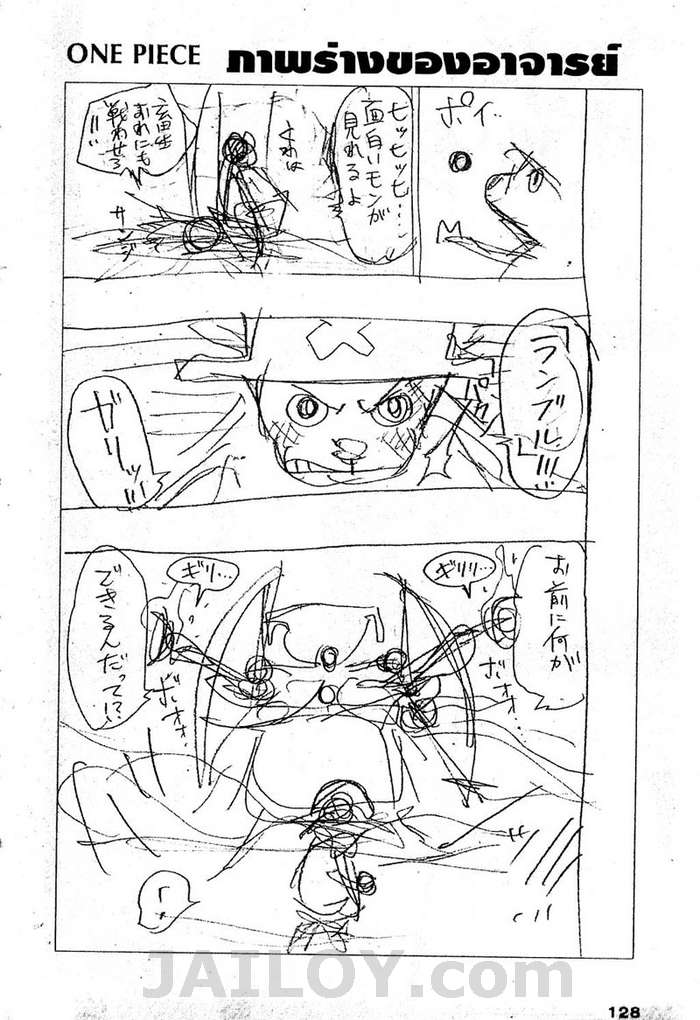 ONE PIECE ภาพร่างของอาจารย์
ポイ…
ヒッヒッヒ…
面白いモンが
見れるよ
くれは
おれにも
戦わせろ
!!
サンジ
「ランブル!!!」
パク
ガリッ!!
お前に何が
ギリリ…
ギリ…
ボオォ
ボオォ
できるんだって!?
128
JAILOY.com